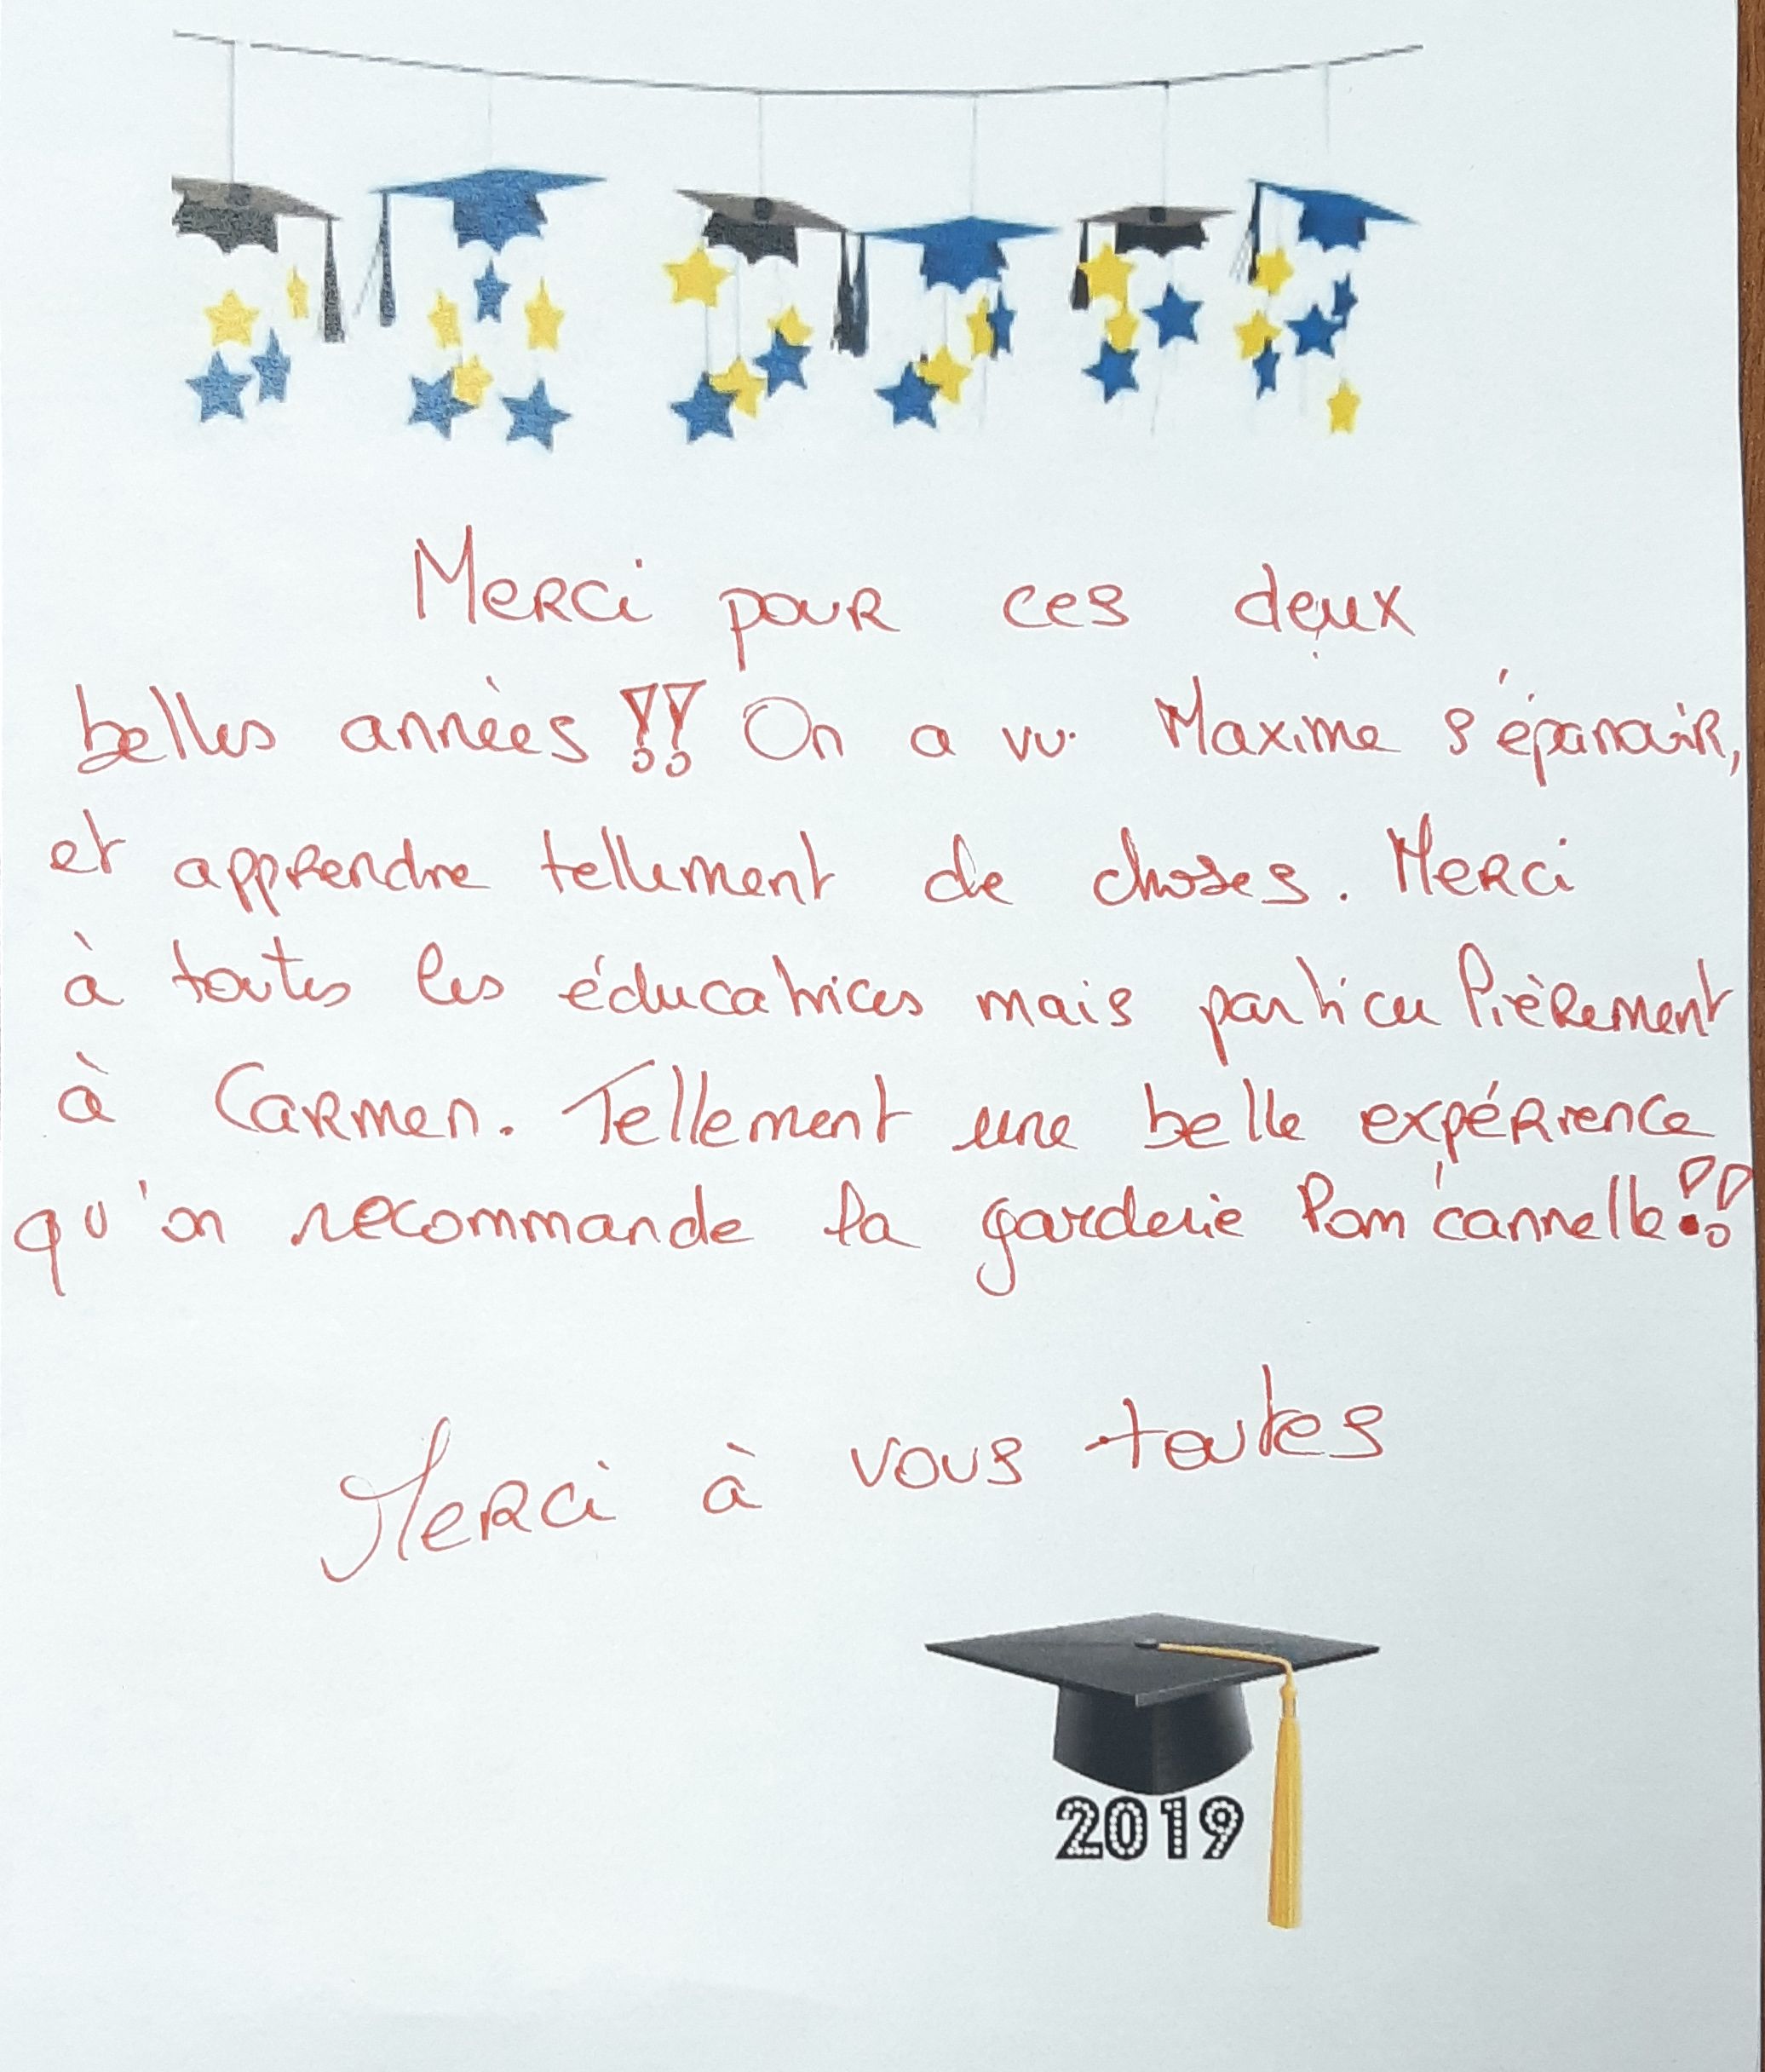 Merci pour ces deux
belles années !! On a vu Maxime s'épanouir,
et apprendre tellement de choses. Merci
à toutes les éducatrices mais particulièrement
à Carmen. Tellement une belle expérience
qu'on recommande la garderie Pom'cannelle !!
Merci à vous toutes
2019